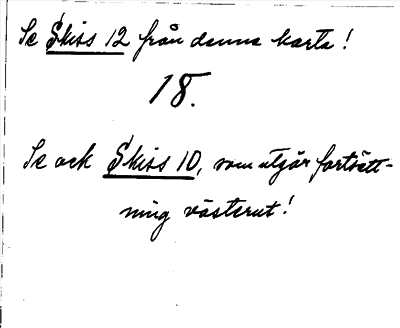 Se Skiss 12 från denna karta!
18.
Se och Skiss 10, som utgör fortsätt-
ning västerut!